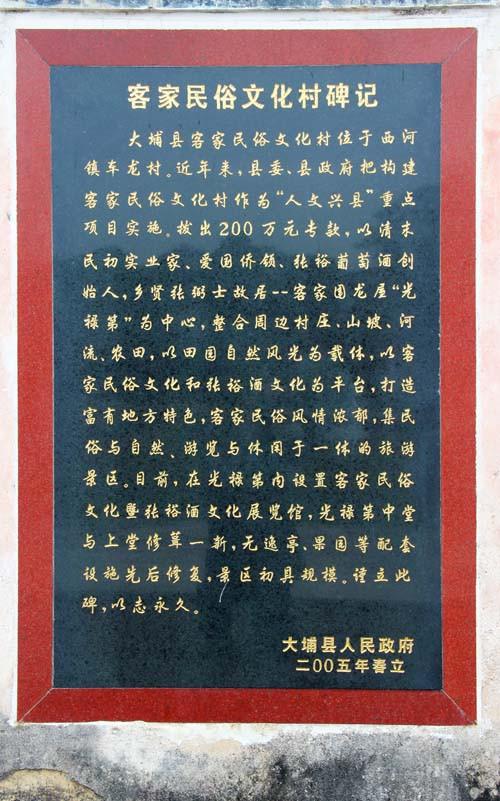 客家民俗文化村碑记
大埔县客家民俗文化村位于西河
镇车龙村。近年来,县委、县政府把构建
客家民俗文化村作为“人文兴县”重点
项目实施。拨出200万元专款,以清末
民初实业家、爱国侨领、张裕葡萄酒创
始人,乡贤张弼士故居--客家围龙屋“光
禄第”为中心,整合周边村庄、山坡、河
流、农田,以田园自然风光为载体,以客
家民俗文化和张裕酒文化为平台,打造
富有地方特色,客家民俗风情浓郁,集民
俗与自然、游览与休闲于一体的旅游
景区。目前,在光禄第内设置客家民俗
文化暨张裕酒文化展览馆,光禄第中堂
与上堂修葺一新,无逸亭、果园等配套
设施先后修复,景区初具规模。谨立此
碑,以志永久。
大埔县人民政府
二00五年春立